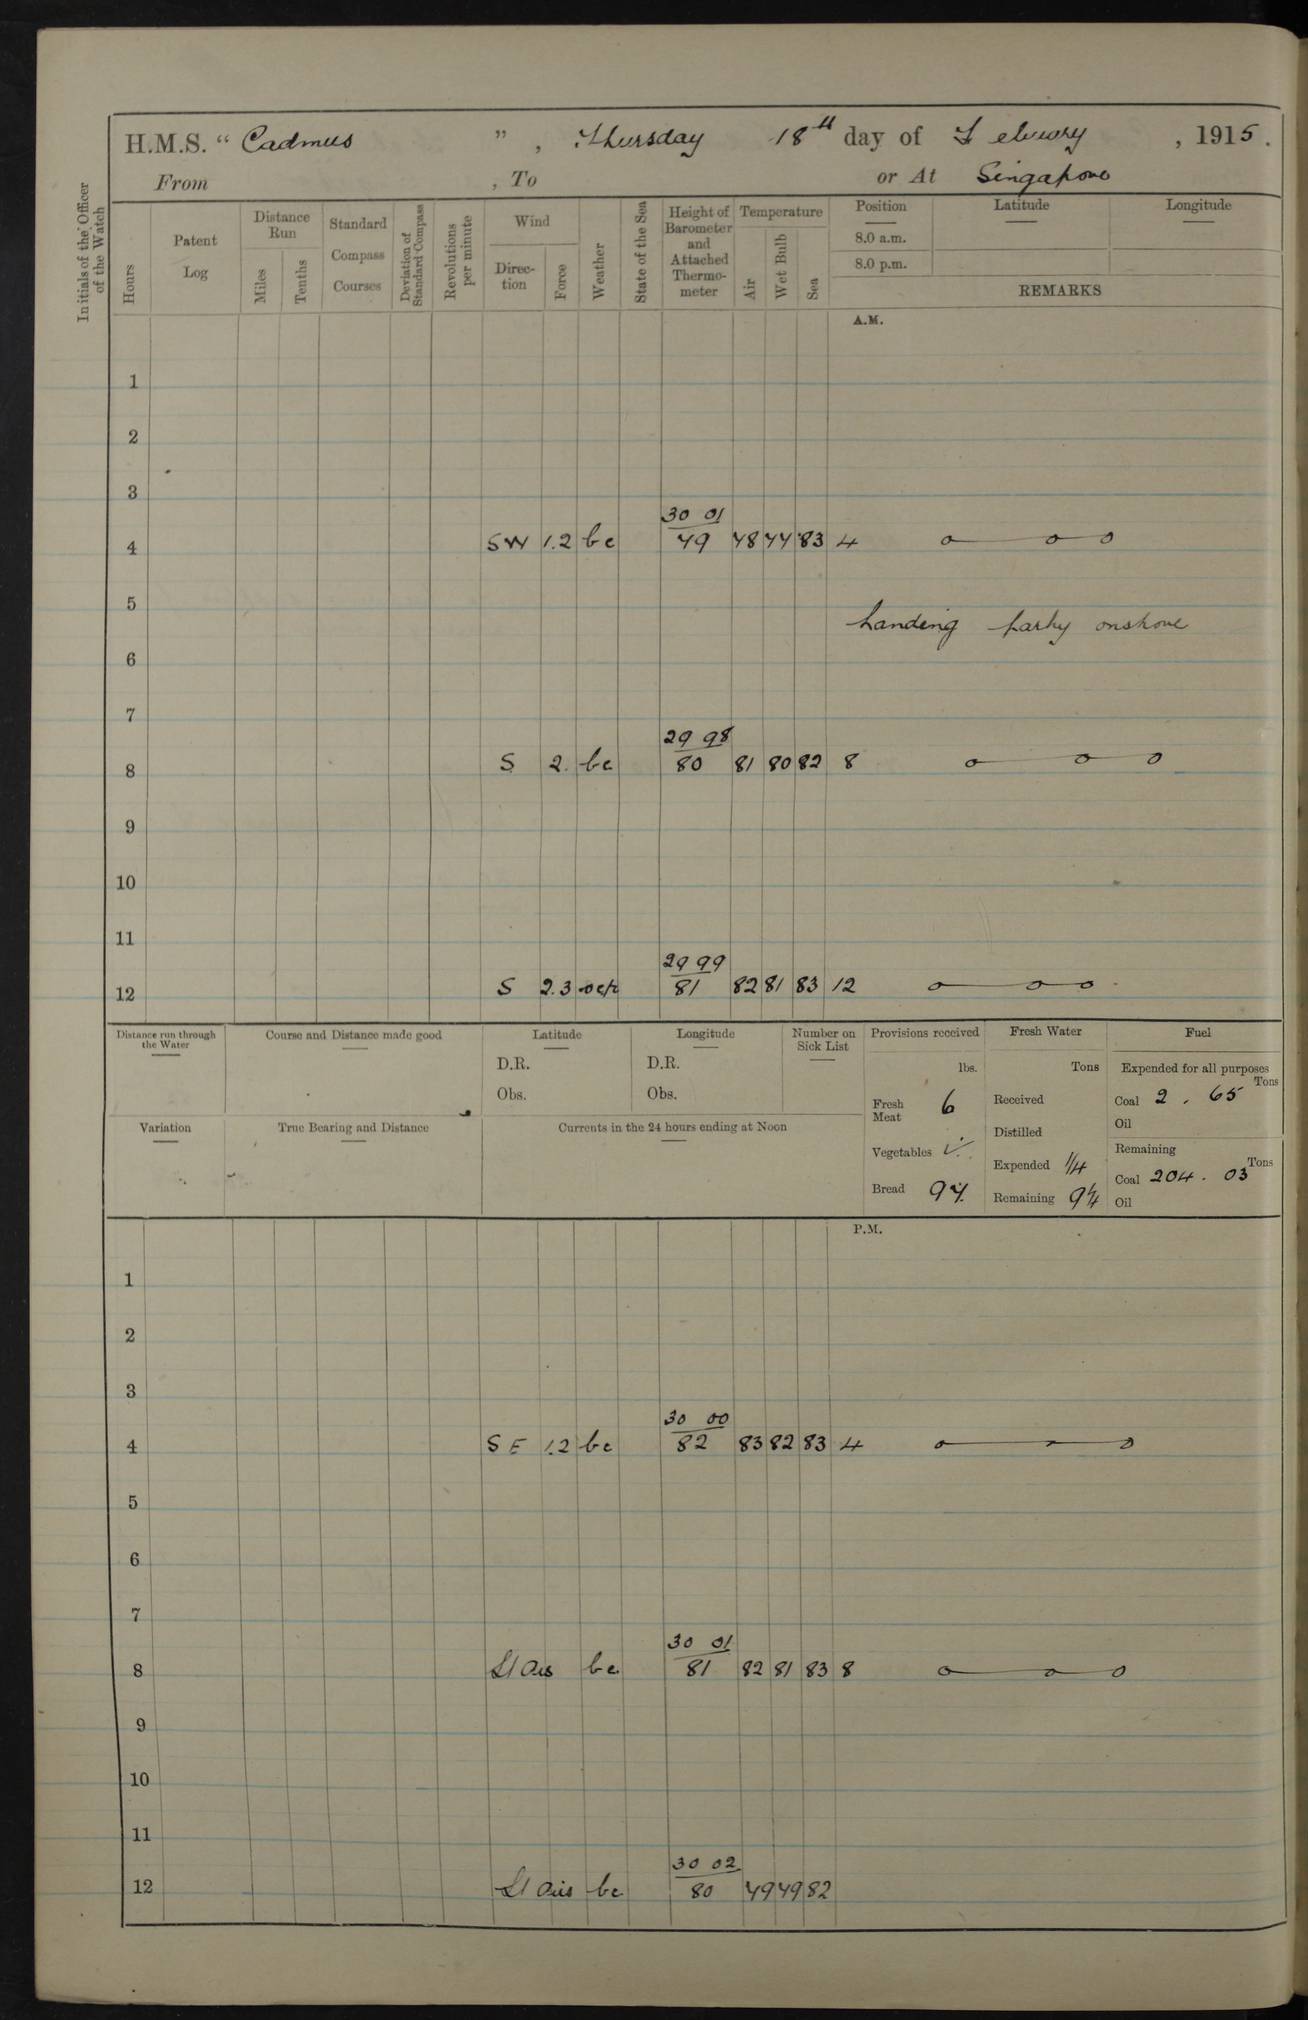 H.M.S. " Cadmus " , Thursday 18th day of Febuary , 1915.
From , To or At Singapore
Initials of the Officer of the Watch
Hours
Patent Log
Distance Run
Miles
Tenths
Standard Compass Courses
Deviation of Standard Compass
Revolutions per minute
Wind
Direc-tion
Force
Weather
State of the Sea
Height of Barometer and Attached Thermo-meter
Temperature
Air
Wet Bulb
Sea
Position Latitude Longitude
8.0 a.m.
8.0 p.m.
REMARKS
A.M.
1
2
3
30 01
4 SW 1.2 bc 79 78 77 83 4
5
Landing party onshore
6
7
29 98
8 S 2. bc 80 81 80 82 8
9
10
11
29 99
12 S 2.3 82 81 83 12
81
Distance run through the Water
Course and Distance made good
Latitude
D.R.
Obs.
Longitude
D.R.
Obs.
Number on Sick List
Provisions received
lbs.
Fresh Meat 6
Vegetables
Bread 97
Fresh Water
Tons
Received
Distilled
Expended 1/4
Remaining
Fuel
Expended for all purposes
Tons
Coal 2 . 65
Oil
Remaining
Tons
Coal 204 . 03
Oil
Variation
True Bearing and Distance
Currents in the 24 hours ending at Noon
P.M.
1
2
3
30 00
4 SE 1.2 bc 82 83 82 83 4
5
6
7
30 01
8 bc 81 82 81 83 8
9
10
11
30 02
12 bc 80 79 79 82